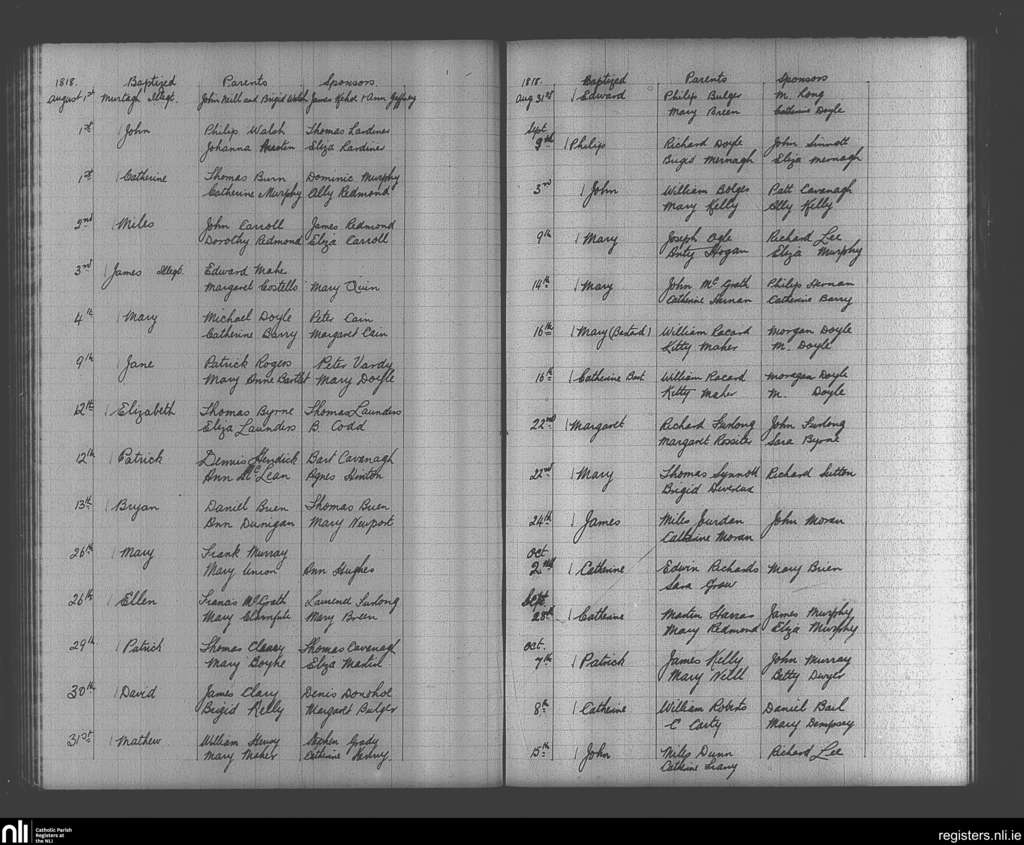 1818. Baptized Parents Sponsors
August 1st Murtagh Illegt. John Neill and Brigid Walsh James & Ann Gaffney
1st John Philip Walsh Thomas Lardiner
Johanna Eliza Lardiner
1st Catherine Thomas Burn Dominic Murphy
Catherine Murphy Ally Redmond
2nd Miles John Carroll James Redmond
Dorothy Redmond Eliza Carroll
3rd James Illegt. Edward Mahe
Margaret Costello Mary Quin
4th Mary Michael Doyle Peter Cain
Catherine Barry Margaret Cain
9th Jane Patrick Rogers Peter Vardy
Mary Anne Bartlet Mary Doyle
12th Elizabeth Thomas Byrne Thomas Launders
Eliza Launders B. Codd
12th Patrick Dennis Hendick Bart Cavanagh
Ann McLean Agnes Hinton
13th Bryan Daniel Brien Thomas Brien
Ann Dunigan Mary Newport
26th Mary Frank Murray
Mary Ann Hughes
26th Ellen Francis McGrath Laurence Furlong
Mary Mary Breen
29th Patrick Thomas Cleary Thomas Cavenagh
Mary Boyhe Eliza Martin
30th David James Clary Denis Donohoe
Brigid Kelly Margaret Bulger
31st Mathew William Henry Stephen Grady
Mary Maher Catherine Henry
1818. Baptized Parents Sponsors
Aug 31st Edward Philip Bulger M. Long
Mary Breen Catherine Doyle
Sept
3rd Philip Richard Doyle John Sinnott
Brigid Mernagh Eliza Mernagh
3rd John William Bolger Patt Cavanagh
Mary Kelly Elly Kelly
9th Mary Joseph Ogle Richard Lee
Anty Hogan Eliza Murphy
14th Mary John McGrath Philip Hernan
Catherine Hernan Catherine Barry
16th Mary (Bastard) William Racard Morgan Doyle
Kitty Maher M. Doyle
16th Catherine Bast William Racard Moregan Doyle
Kitty Maher M. Doyle
22nd Margaret Richard Furlong John Furlong
Margaret Rossiter Sara Byrne
22nd Mary Thomas Synnott Richard Sutton
Brigid Devereux
24th James Miles Jourdan John Moran
Catherine Moran
Oct
2nd Catherine Edwin Richards Mary Brien
Sara Graw
Sept.
28th Catherine Martin Harras James Murphy
Mary Redmond Eliza Murphy
Oct.
7th Patrick James Kelly John Murray
Mary Neill Betty Dwyer
8th Catherine William Roberts Daniel Bail
C Carty Mary Dempsey
15th John Miles Dunn Richard Lee
Catherine Leary
nli Catholic Parish
Registers at
the NLI
registers.nli.ie